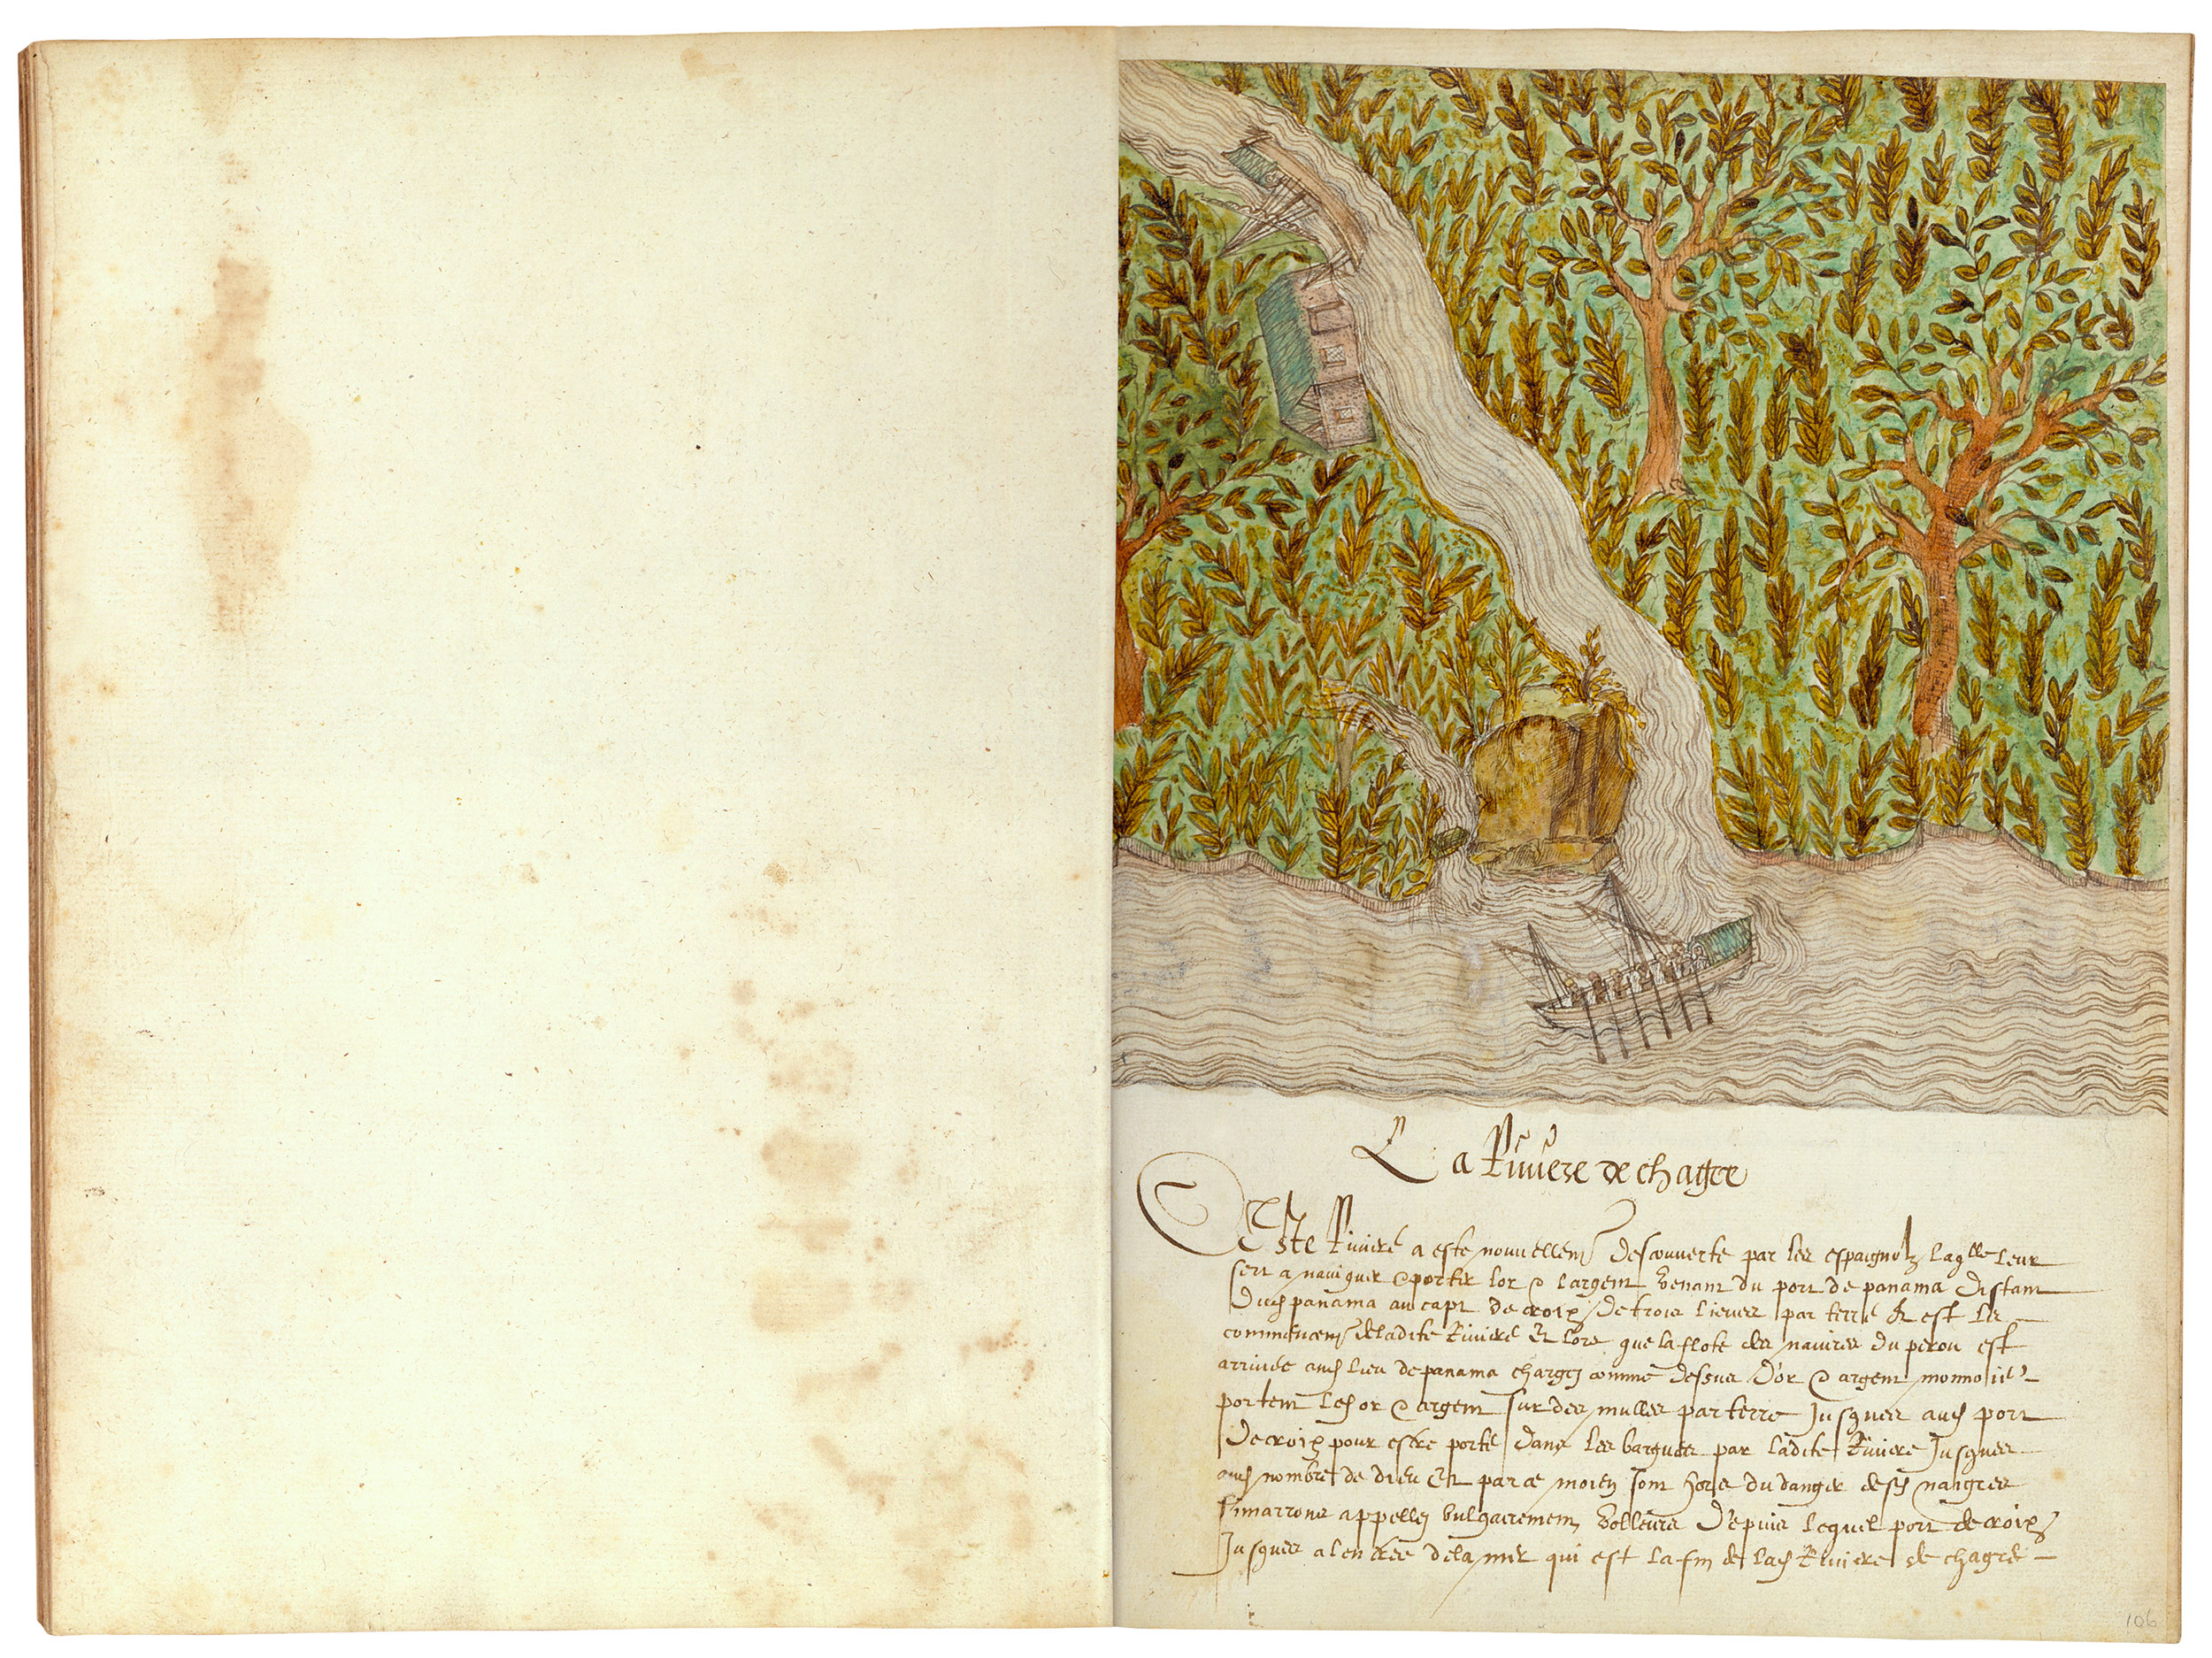 La Riviere de chagre
Ceste Riviere a este nouvellemt descouverte par les espaignolz laqlle leur
sert a naviguer & porter lor & largent venant du port de panama distant
dud panama au capt de croix de trois lieues par terre & est le
commencemt deladite Riviere Et lors que la flote des navires du perou est
arrivée aud lieu de panama chargez comme dessus d'or & argent monnoié
portent led or & argent sur des mulles par terre Jusques aud port
de croix pour estre porté dans les barques par ladite Riviere Jusques
aud nombre de dieu Et par ce moien sont hors du danger desd naigres
Simarrons appellez vulgairement volleurs Depuis lequel port de croix
Jusques a lentrée dela mer qui est la fin de lad Riviere de chagre
106